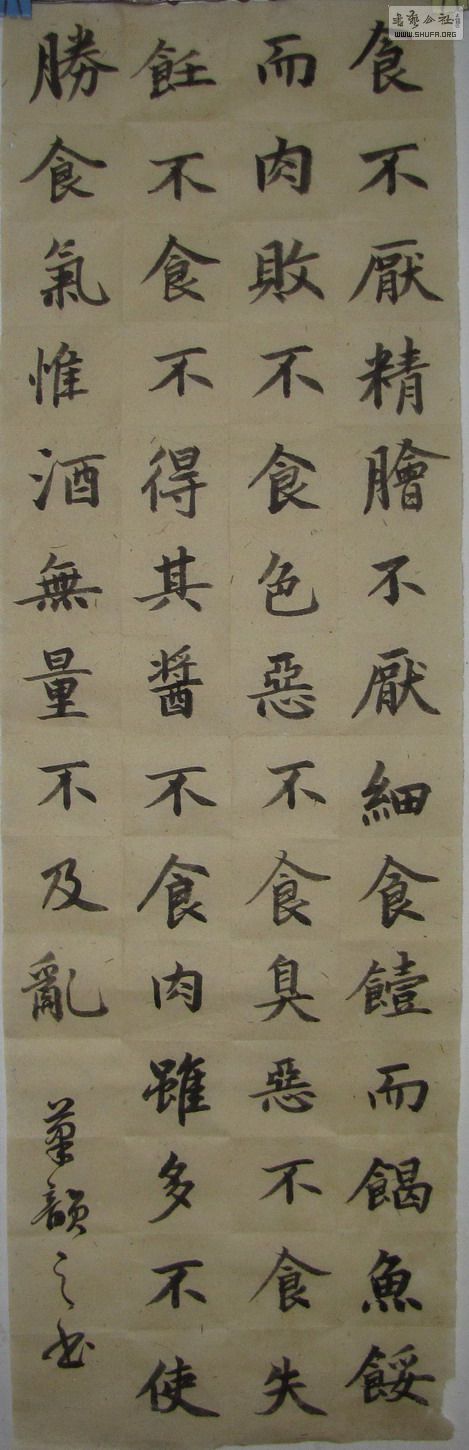 食不厭精膾不厭細食饐而餲魚餒
而肉敗不食色惡不食臭惡不食失
飪不食不得其醬不食肉雖多不使
勝食氣惟酒無量不及亂
韻之書
書藝公社
WWW.SHUFA.ORG